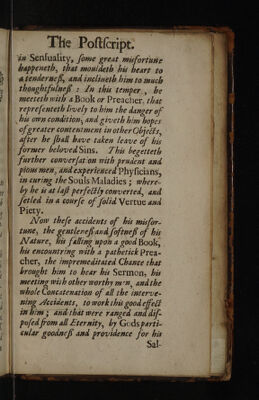 The Poſtſcript.
in Senſuality, ſome great misfortune
happeneth, that mouldeth his heart to
a tenderneſs, and inclineth him to much
thoughtfulneſs : In this temper, he
meeteth with a Book or Preacher, that
repreſenteth lively to him the danger of
his own condition, and giveth him hopes
of greater contentment in other Objects,
after he ſhall have taken leave of his
former beloved Sins. This begetteth
further converſation with prudent and
pious men, and experienced Phyſicians,
in curing the Souls Maladies ; where-
by he is at laſt perfectly converted, and
ſetled in a courſe of ſolid Vertue and
Piety.
Now theſe accidents of his misfor-
tune, the gentleneſs and ſoftneſs of his
Nature, his falling upon a good Book,
his encountring with a pathetick Prea-
cher, the impremeditated Chance that
brought him to hear his Sermon, his
meeting with other worthy men, and the
whole Concatenation of all the interve-
ning Accidents, to work this good effect
in him ; and that were ranged and diſ-
poſed from all Eternity, by Gods parti-
cular goodneſs and providence for his
Sal-